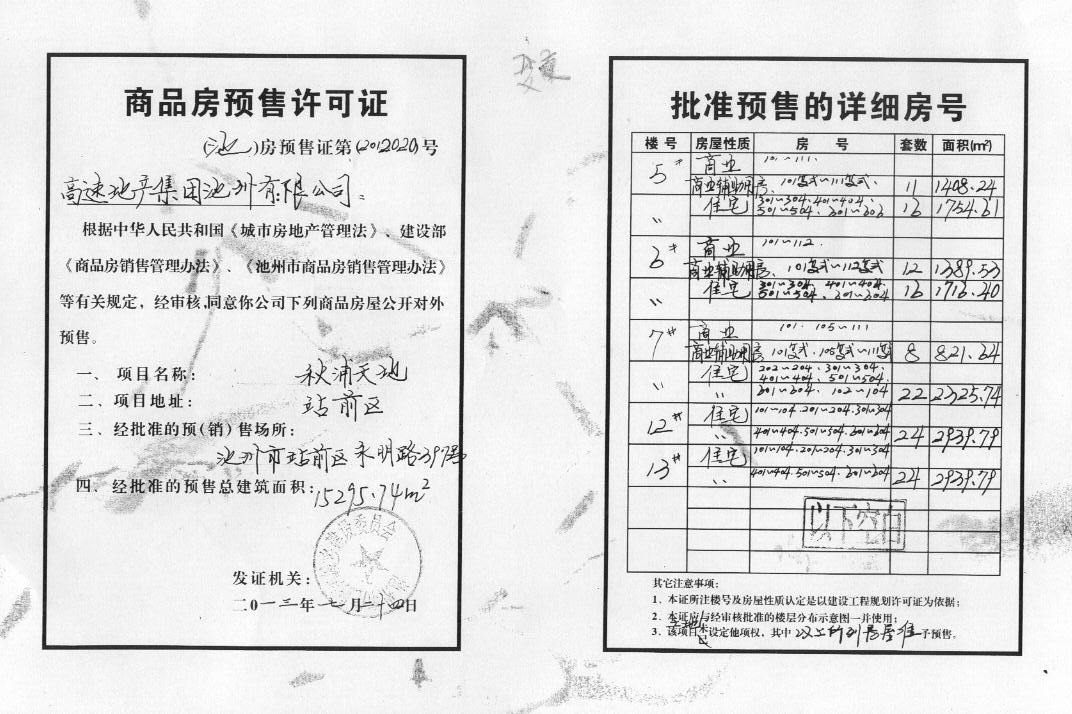 商品房预售许可证
(池)房预售证第(2012020)号
高速地产集团池州有限公司：
根据中华人民共和国《城市房地产管理法》、建设部
《商品房销售管理办法》、《池州市商品房销售管理办法》
等有关规定，经审核，同意你公司下列商品房屋公开对外
预售。
一、项目名称：秋浦天地
二、项目地址：站前区
三、经批准的预(销)售场所：
池州市站前区永明路397号
四、经批准的预售总建筑面积：15295.74m²
建设委员会
发证机关：
二0一三年七月二十四日
变更
批准预售的详细房号
楼号 房屋性质 房号 套数 面积(㎡)
5# 商业 101~111.
商业辅助用房、101复式~111复式、 11 1408.24
〃 住宅 301~304、401~404、
501~504、601~606 16 1754.61
6# 商业 101~112.
商业辅助用房、101复式~112复式 12 1389.53
〃 住宅 301~304、401~404、
501~504、601~604 16 1716.40
7# 商业 101、105~111
商业辅助用房 101复式、105复式~111复式 8 821.64
〃 住宅 202~204、301~304、
401~404、501~504、
〃 601~604、102~104 22 2325.74
12# 住宅 101~104.201~204.301~304
〃 401~404.501~504.601~604 24 2939.79
13# 住宅 101~104.201~204.301~304
〃 401~404.501~504、601~604 24 2939.79
以下空白
其它注意事项：
1、本证所注楼号及房屋性质认定是以建设工程规划许可证为依据；
2、本证应与经审核批准的楼层分布示意图一并使用；
3、该项目土地未设定他项权，其中以上所列房屋准予预售。